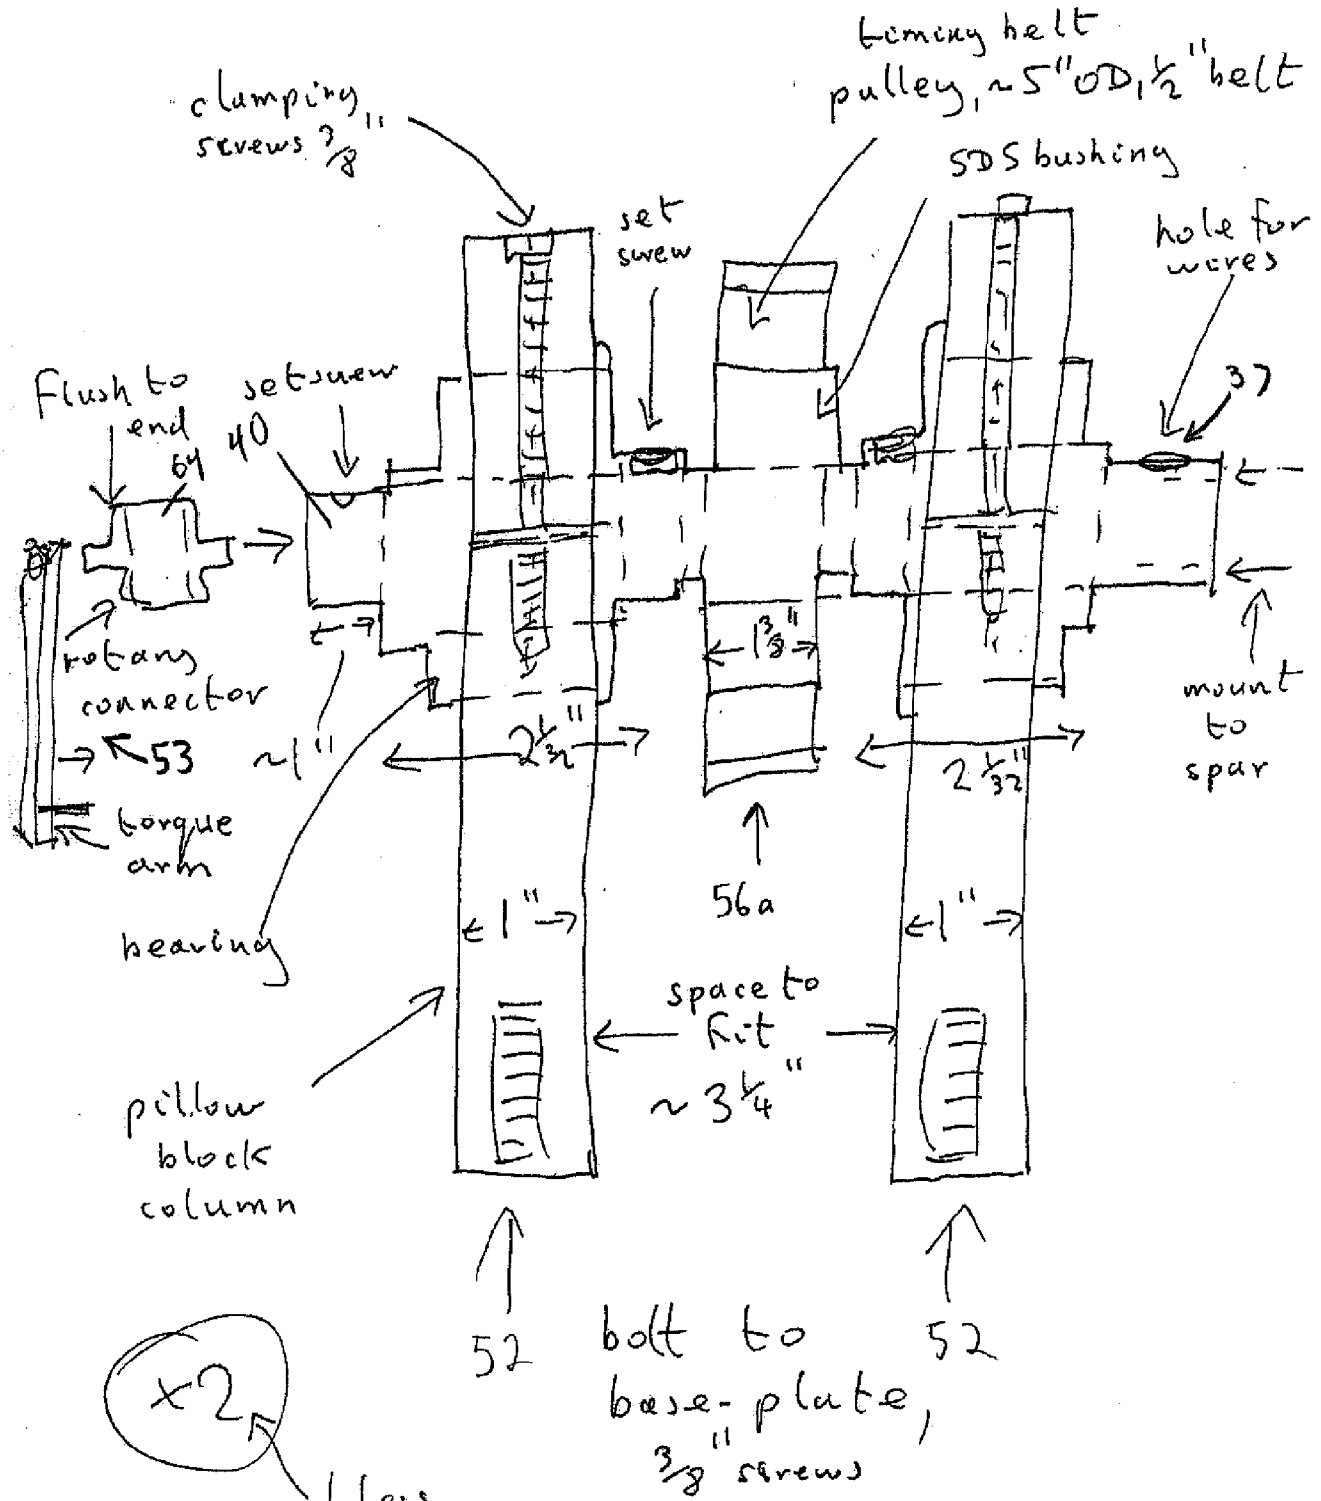 timing belt
pulley, ~5" OD, 1/2" belt
clamping
screws 3/8"
SDS bushing
set
screw
hole for
wires
37
Flush to
end
64
40
setscrew
rotary
connector
53
~1"
torque
arm
bearing
2 1/32"
1 3/8"
2 1/32"
mount
to
spar
56a
1"
1"
space to
fit
~ 3 1/4"
pillow
block
column
52
52
bolt to
base-plate,
3/8" screws
x2